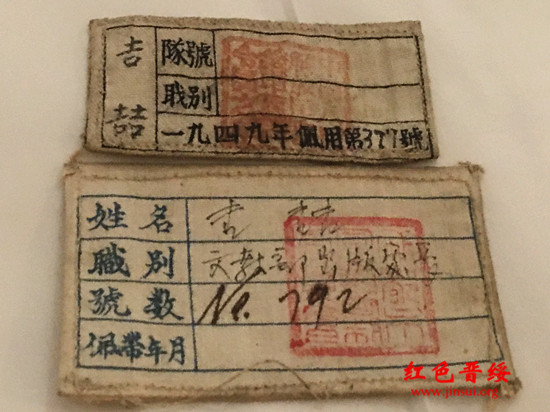 吉 喆
隊號
職别
一九四九年佩用第377號
姓名 吉喆
職别 文教部出版處長
號數 No. 792
佩帶年月
红色晋绥
www.jinsui.org